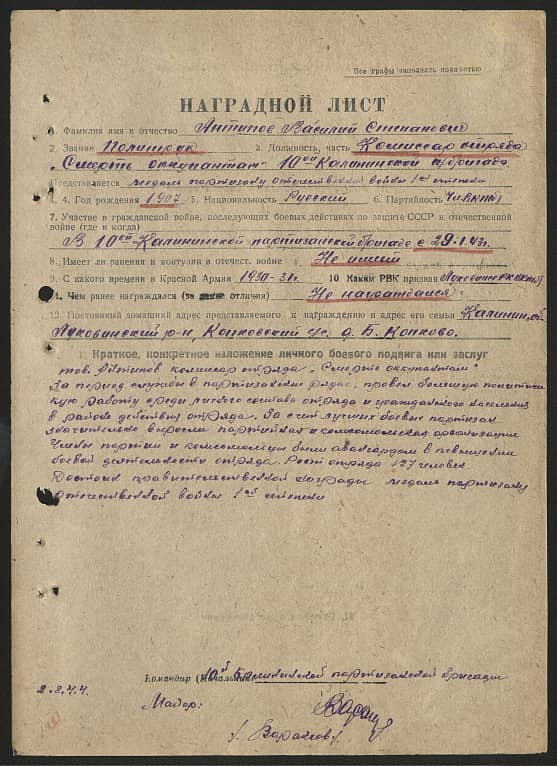 Все графы заполнять полностью
НАГРАДНОЙ ЛИСТ
1. Фамилия имя и отчество Антипов Василий Степанович
2. Звание Политрук 3. Должность, часть Комиссар отряда
„Смерть оккупантам" 10ой Калининской п/бригады
Представляется медаль партизану отечественной войны 1ой степени
4. Год рождения 1907 5. Национальность Русский 6. Партийность Чл ВКП(б)
7. Участие в гражданской войне, последующих боевых действиях по защите СССР и отечественной
войне (где и когда)
В 10ой Калининской партизанской бригаде с 29.1.43г.
8. Имеет ли ранения и контузии в отечест. войне Не имеет
9. С какого времени в Красной Армии 1930-31г. 10 Каким РВК призван
11. Чем ранее награждался (за какие отличия) Не награждался
12. Постоянный домашний адрес представляемого к награждению и адрес его семьи
р-н, с/с. д. Б.
I. Краткое, конкретное изложение личного боевого подвига или заслуг
тов. Антипов комиссар отряда „Смерть оккупантам"
За период службы в партизанских рядах, провел большую политичес
кую работу среди личного состава отряда и гражданского населения
в районе действия отряда. За счет лучших боевых партизан
значительно выросли партийная и комсомольская организации
Члены партии и комсомольцы были авангардом в повышении
боевой деятельности отряда. Рост отряда 127 человек
Достоин правительственной награды медаль партизану
отечественной войны 1ой степени
Командир (Начальник) 10ой Калининской партизанской бригады
2.3.44.
Майор: